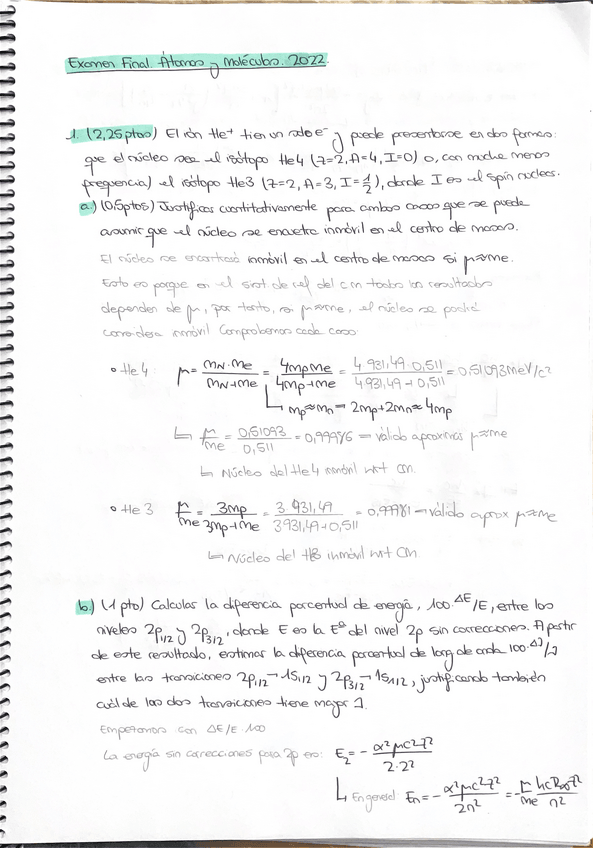 Examen Final Átomos y Moléculas. 2022.
1. (2,25ptos) El ión He⁺ tien un solo e⁻ y puede presentarse en dos formas:
que el núcleo sea el isótopo He4 (Z=2, A=4, I=0) o, con mucha menos
frecuencia) el isótopo He3 (Z=2, A=3, I=1/2), donde I es el spin nuclear.
a.) (0,5ptos) Justificar cuantitativamente para ambos casos que se puede
asumir que el núcleo se encuetra inmóvil en el centro de masas.
El núcleo se encontrará inmóvil en el centro de masas si μ≈me.
Esto es porque en el sist. de ref del cm todos los resultados
dependen de μ, por tanto, si μ≈me, el núcleo se podrá
considera inmóvil Comprobemos cada caso:
• He 4: μ = mN·me / mN+me = 4mpme / 4mp+me = 4·931,49·0,511 / 4·931,49+0,511 = 0,51093 MeV/c²
↳ mp≈mn → 2mp+2mn≈4mp
↳ μ/me = 0,51093 / 0,511 = 0,99986 → válido aproximar μ≈me
↳ Núcleo del He4 inmóvil wrt CM.
• He 3 μ/me = 3mp / 3mp+me = 3·931,49 / 3·931,49+0,511 = 0,99981 → válido aprox μ≈me
↳ Núcleo del H3 inmóvil wrt CM.
b.) (1 pto) Calcular la diferencia porcentual de energía, 100·ΔE/E, entre los
niveles 2p1/2 y 2p3/2, donde E es la Eª del nivel 2p sin correcciones. A partir
de este resultado, estimar la diferencia porcentual de long de onda 100·Δλ/λ
entre las transiciones 2p1/2→1s1/2 y 2p3/2→1s1/2, justificando también
cuál de las dos transiciones tiene mayor λ.
Empezamos con ΔE/E·100
La energía sin correcciones para 2p es: E₂ = - α²μc²Z² / 2·2²
↳ En general En = - α²μc²Z² / 2n² = - μ/me hcR∞Z² / n²